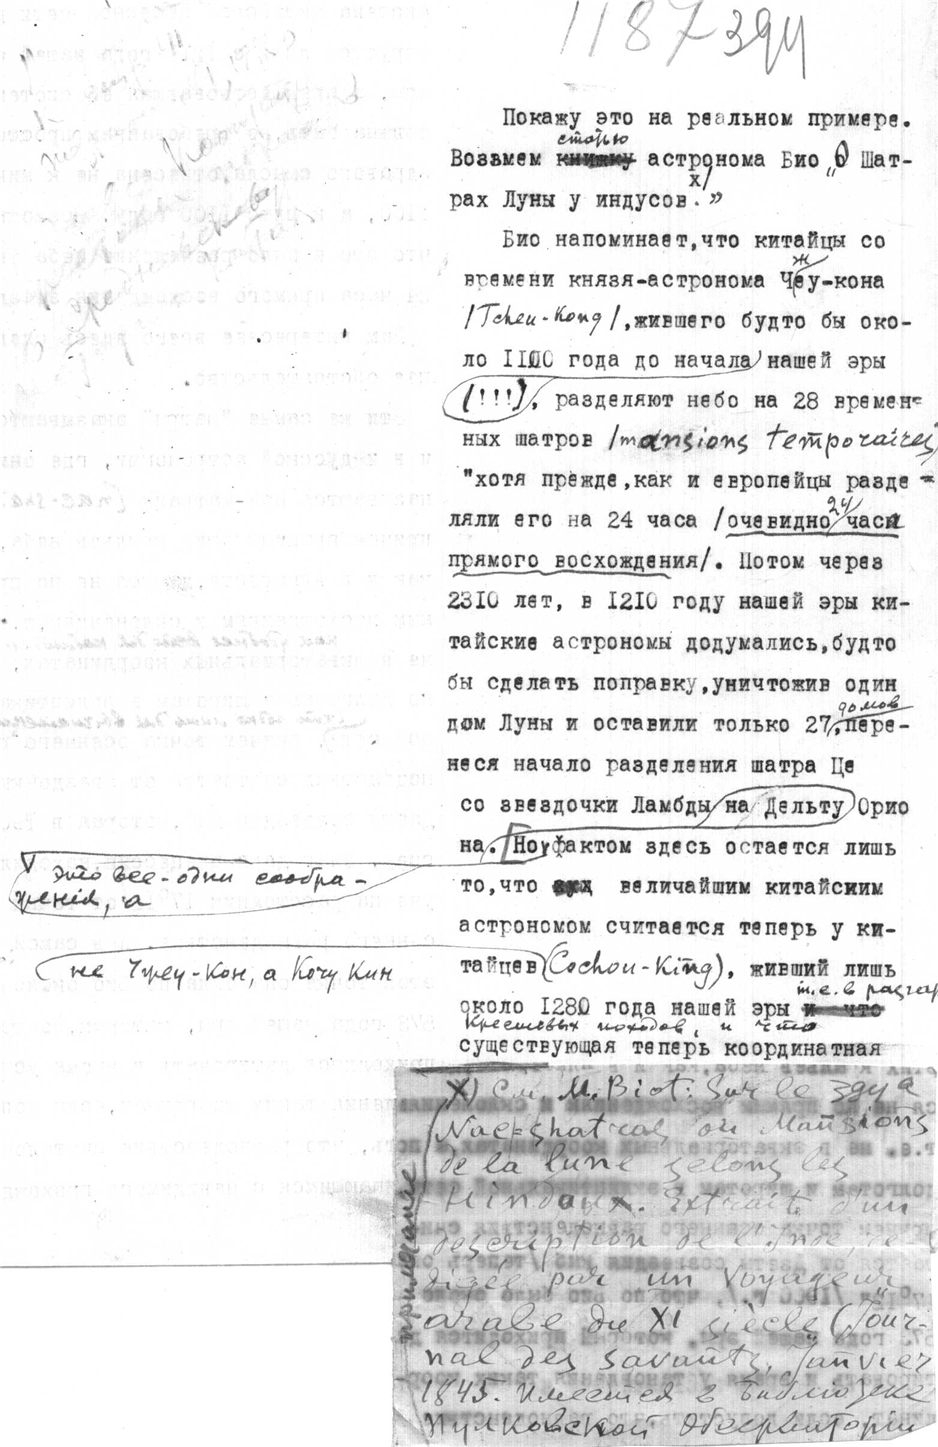 1187 394
Покажу это на реальном примере.
статью
Возьмем книжку астронома Био „О Шат-
х/
рах Луны у индусов."
Био напоминает,что китайцы со
ж
времени князя-астронома Чеу-кона
/Tcheu-Kong/,жившего будто бы око-
ло 1100 года до начала нашей эры
(!!!), разделяют небо на 28 времен-
ных шатров /mansions temporaires/
"хотя прежде,как и европейцы разде-
24
ляли его на 24 часа /очевидно часа
прямого восхождения/. Потом через
2310 лет, в 1210 году нашей эры ки-
тайские астрономы додумались,будто
бы сделать поправку,уничтожив один
домов
дом Луны и оставили только 27,пере-
неся начало разделения шатра Це
со звездочки Ламбды на Дельту Орио
на. Но фактом здесь остается лишь
это все - одни сообра-
жения, а
то,что величайшим китайским
астрономом считается теперь у ки-
не Чжеу-Кон, а Кочу Кин
тайцев (Cochou-King), живший лишь
т.е. в разгар
около 1280 года нашей эры и что
Крестовых походов, и что
существующая теперь координатная
примечание
х) См. M. Biot: Sur les
Nacshatras ou Mansions
de la lune selons les
Hindoux. Extrait d'un
description de l'Inde, re-
digée par un voyageur
arabe du XI siècle (Jour-
nal des savants, Janvier
1845. Имеется в Библиотеке
Пулковской обсерватории